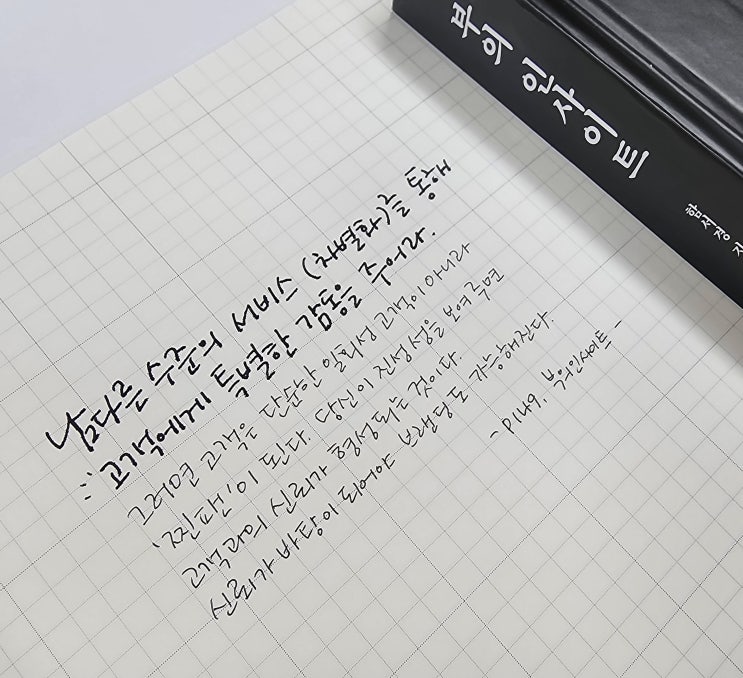 부의 인사이트
함서경 지
남다른 수준의 서비스 (차별화)를 통해
고객에게 특별한 감동을 주어라.
그러면 고객은 단순한 일회성 고객이 아니라
'찐팬'이 된다. 당신이 진성성을 보여주면
고객과의 신뢰가 형성되는 것이다.
신뢰가 바탕이 되어야 브랜딩도 가능해진다.
- P149, 부의인사이트 -